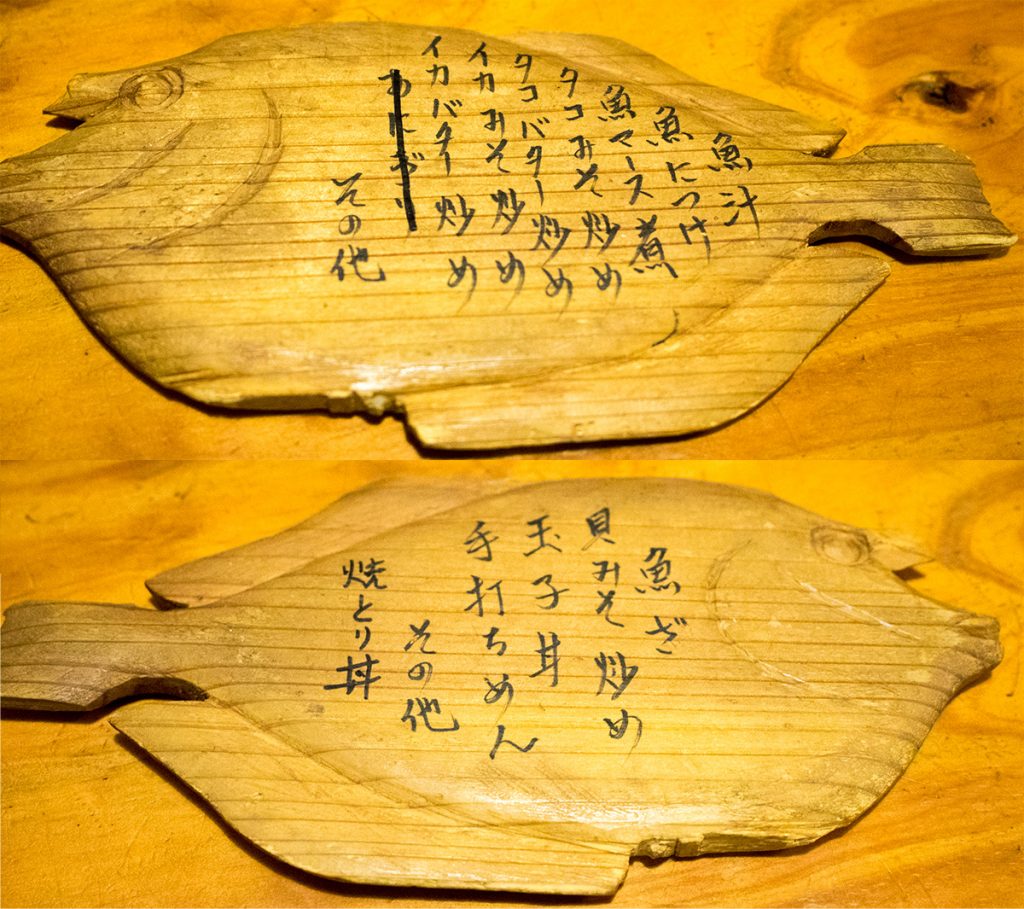 魚汁
魚につけ
魚マース煮
タコみそ炒め
タコバター炒め
イカみそ炒め
イカバター炒め
その他
魚ざ
貝みそ炒め
玉子丼
手打ちめん
その他
焼とり丼